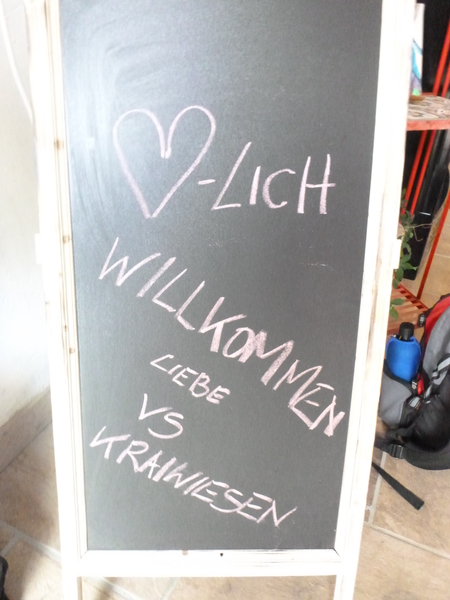 ♡-LICH
WILLKOMMEN
LIEBE
VS
KRAIWIESEN